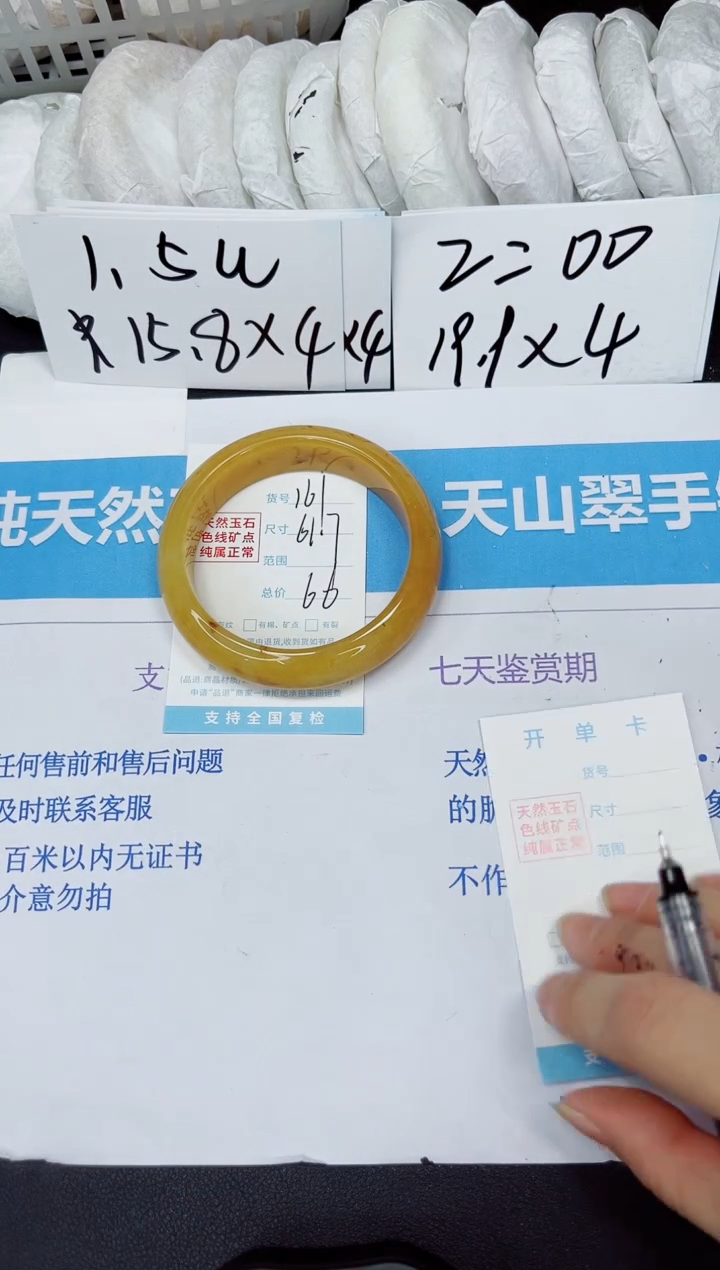 1.5W
15.8×4
×4
2=00
19.1×4
纯天然
天山翠手
货号 161
天然玉石
色线矿点
纯属正常
尺寸 61.7
范围
总价 66
有棉、矿点
有裂
支持全国复检
支
七天鉴赏期
任何售前和售后问题
及时联系客服
百米以内无证书
介意勿拍
天然
的
不作
开单卡
货号
天然玉石
色线矿点
纯属正常
尺寸
范围